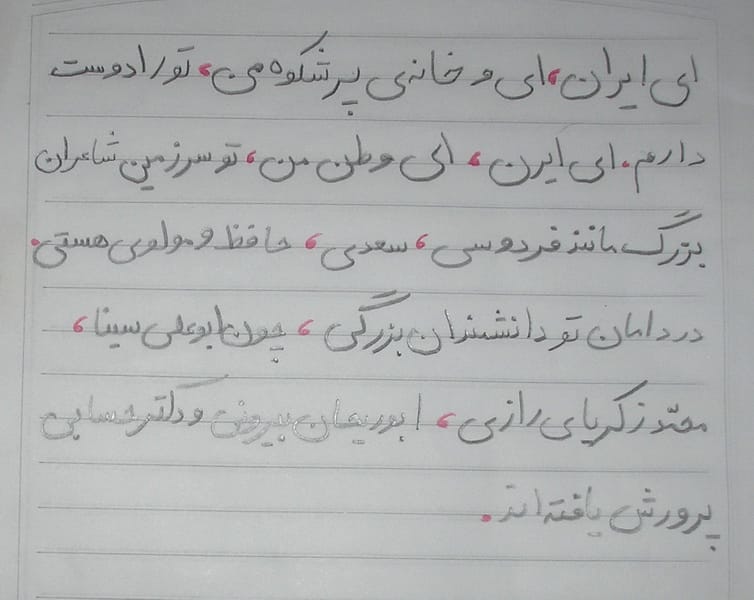 ای ایران، ای و خانه‌ی پرشکوه من، تو را دوست
دارم. ای ایرن، ای وطن من، تو سرزمین شاعران
بزرگ مانند فردوسی، سعدی، حافظ و مولوی هستی.
در دامان تو دانشمندان بزرگی، چون ابوعلی سینا،
محمّد زکریای رازی، ابوریحان بیرونی و دکتر حسابی
پرورش یافته‌اند.